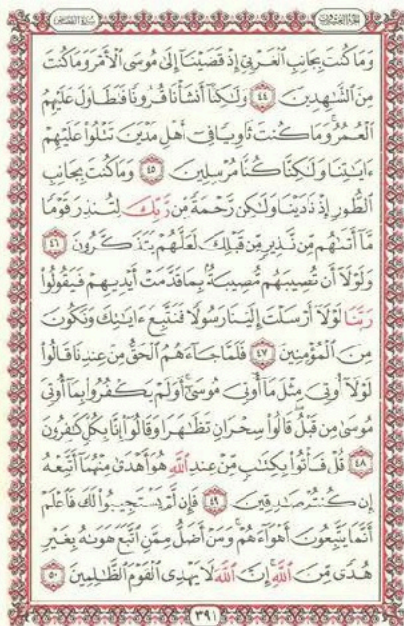 سورة القصص
الجزء العشرون
وَمَا كُنتَ بِجَانِبِ ٱلْغَرْبِىِّ إِذْ قَضَيْنَآ إِلَىٰ مُوسَى ٱلْأَمْرَ وَمَا كُنتَ
مِنَ ٱلشَّٰهِدِينَ ٤٤ وَلَٰكِنَّآ أَنشَأْنَا قُرُونًا فَتَطَاوَلَ عَلَيْهِمُ
ٱلْعُمُرُ ۚ وَمَا كُنتَ ثَاوِيًا فِىٓ أَهْلِ مَدْيَنَ تَتْلُوا۟ عَلَيْهِمْ
ءَايَٰتِنَا وَلَٰكِنَّا كُنَّا مُرْسِلِينَ ٤٥ وَمَا كُنتَ بِجَانِبِ
ٱلطُّورِ إِذْ نَادَيْنَا وَلَٰكِن رَّحْمَةً مِّن رَّبِّكَ لِتُنذِرَ قَوْمًا
مَّآ أَتَىٰهُم مِّن نَّذِيرٍ مِّن قَبْلِكَ لَعَلَّهُمْ يَتَذَكَّرُونَ ٤٦
وَلَوْلَآ أَن تُصِيبَهُم مُّصِيبَةٌۢ بِمَا قَدَّمَتْ أَيْدِيهِمْ فَيَقُولُوا۟
رَبَّنَا لَوْلَآ أَرْسَلْتَ إِلَيْنَا رَسُولًا فَنَتَّبِعَ ءَايَٰتِكَ وَنَكُونَ
مِنَ ٱلْمُؤْمِنِينَ ٤٧ فَلَمَّا جَآءَهُمُ ٱلْحَقُّ مِنْ عِندِنَا قَالُوا۟
لَوْلَآ أُوتِىَ مِثْلَ مَآ أُوتِىَ مُوسَىٰٓ ۚ أَوَلَمْ يَكْفُرُوا۟ بِمَآ أُوتِىَ
مُوسَىٰ مِن قَبْلُ ۖ قَالُوا۟ سِحْرَانِ تَظَٰهَرَا وَقَالُوٓا۟ إِنَّا بِكُلٍّ كَٰفِرُونَ
٤٨ قُلْ فَأْتُوا۟ بِكِتَٰبٍ مِّنْ عِندِ ٱللَّهِ هُوَ أَهْدَىٰ مِنْهُمَآ أَتَّبِعْهُ
إِن كُنتُمْ صَٰدِقِينَ ٤٩ فَإِن لَّمْ يَسْتَجِيبُوا۟ لَكَ فَٱعْلَمْ
أَنَّمَا يَتَّبِعُونَ أَهْوَآءَهُمْ ۚ وَمَنْ أَضَلُّ مِمَّنِ ٱتَّبَعَ هَوَىٰهُ بِغَيْرِ
هُدًى مِّنَ ٱللَّهِ ۚ إِنَّ ٱللَّهَ لَا يَهْدِى ٱلْقَوْمَ ٱلظَّٰلِمِينَ ٥٠
٣٩١